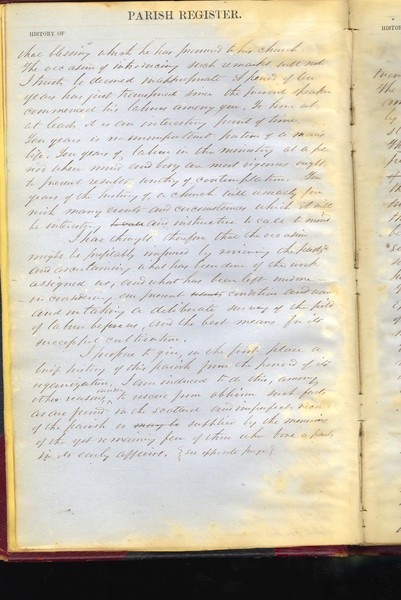 PARISH REGISTER.
HISTORY OF
that blessing which he has promised to his church
The occasion of introducing such remarks will not
I trust, be deemed inappropriate. A period of ten
years has just transpired since the present speaker
commenced his labours among you. To him at
at least, it is an interesting point of time.
Ten years is no unimportant portion of a man's
life. Ten years of labor in the ministry at a pe-
riod when mind and body are most vigorous ought
to present results worthy of contemplation. Ten
years of the history of a church will usually fur-
nish many events and circumstances which it will
be interesting and instructive to call to mind
I has thought therefore that the occasion
might be profitably improved by reviewing the past
and ascertaining what has been done of the work
assigned us, and what has been left undone
in considering our present condition and wants
and in taking a deliberate survey of the field
of labor before us, and the best means for its
successful cultivation.
I propose to give, in the first place a
brief history of this parish from the period of its
organization. I am induced to do this, among
other reasons, to rescue from oblivion such facts
as are found in the scattered and imperfect records
of the parish or may be supplied by the memories
of the yet remaining few of those who bore a part
in its early affairs. (See opposite page)
HISTORY